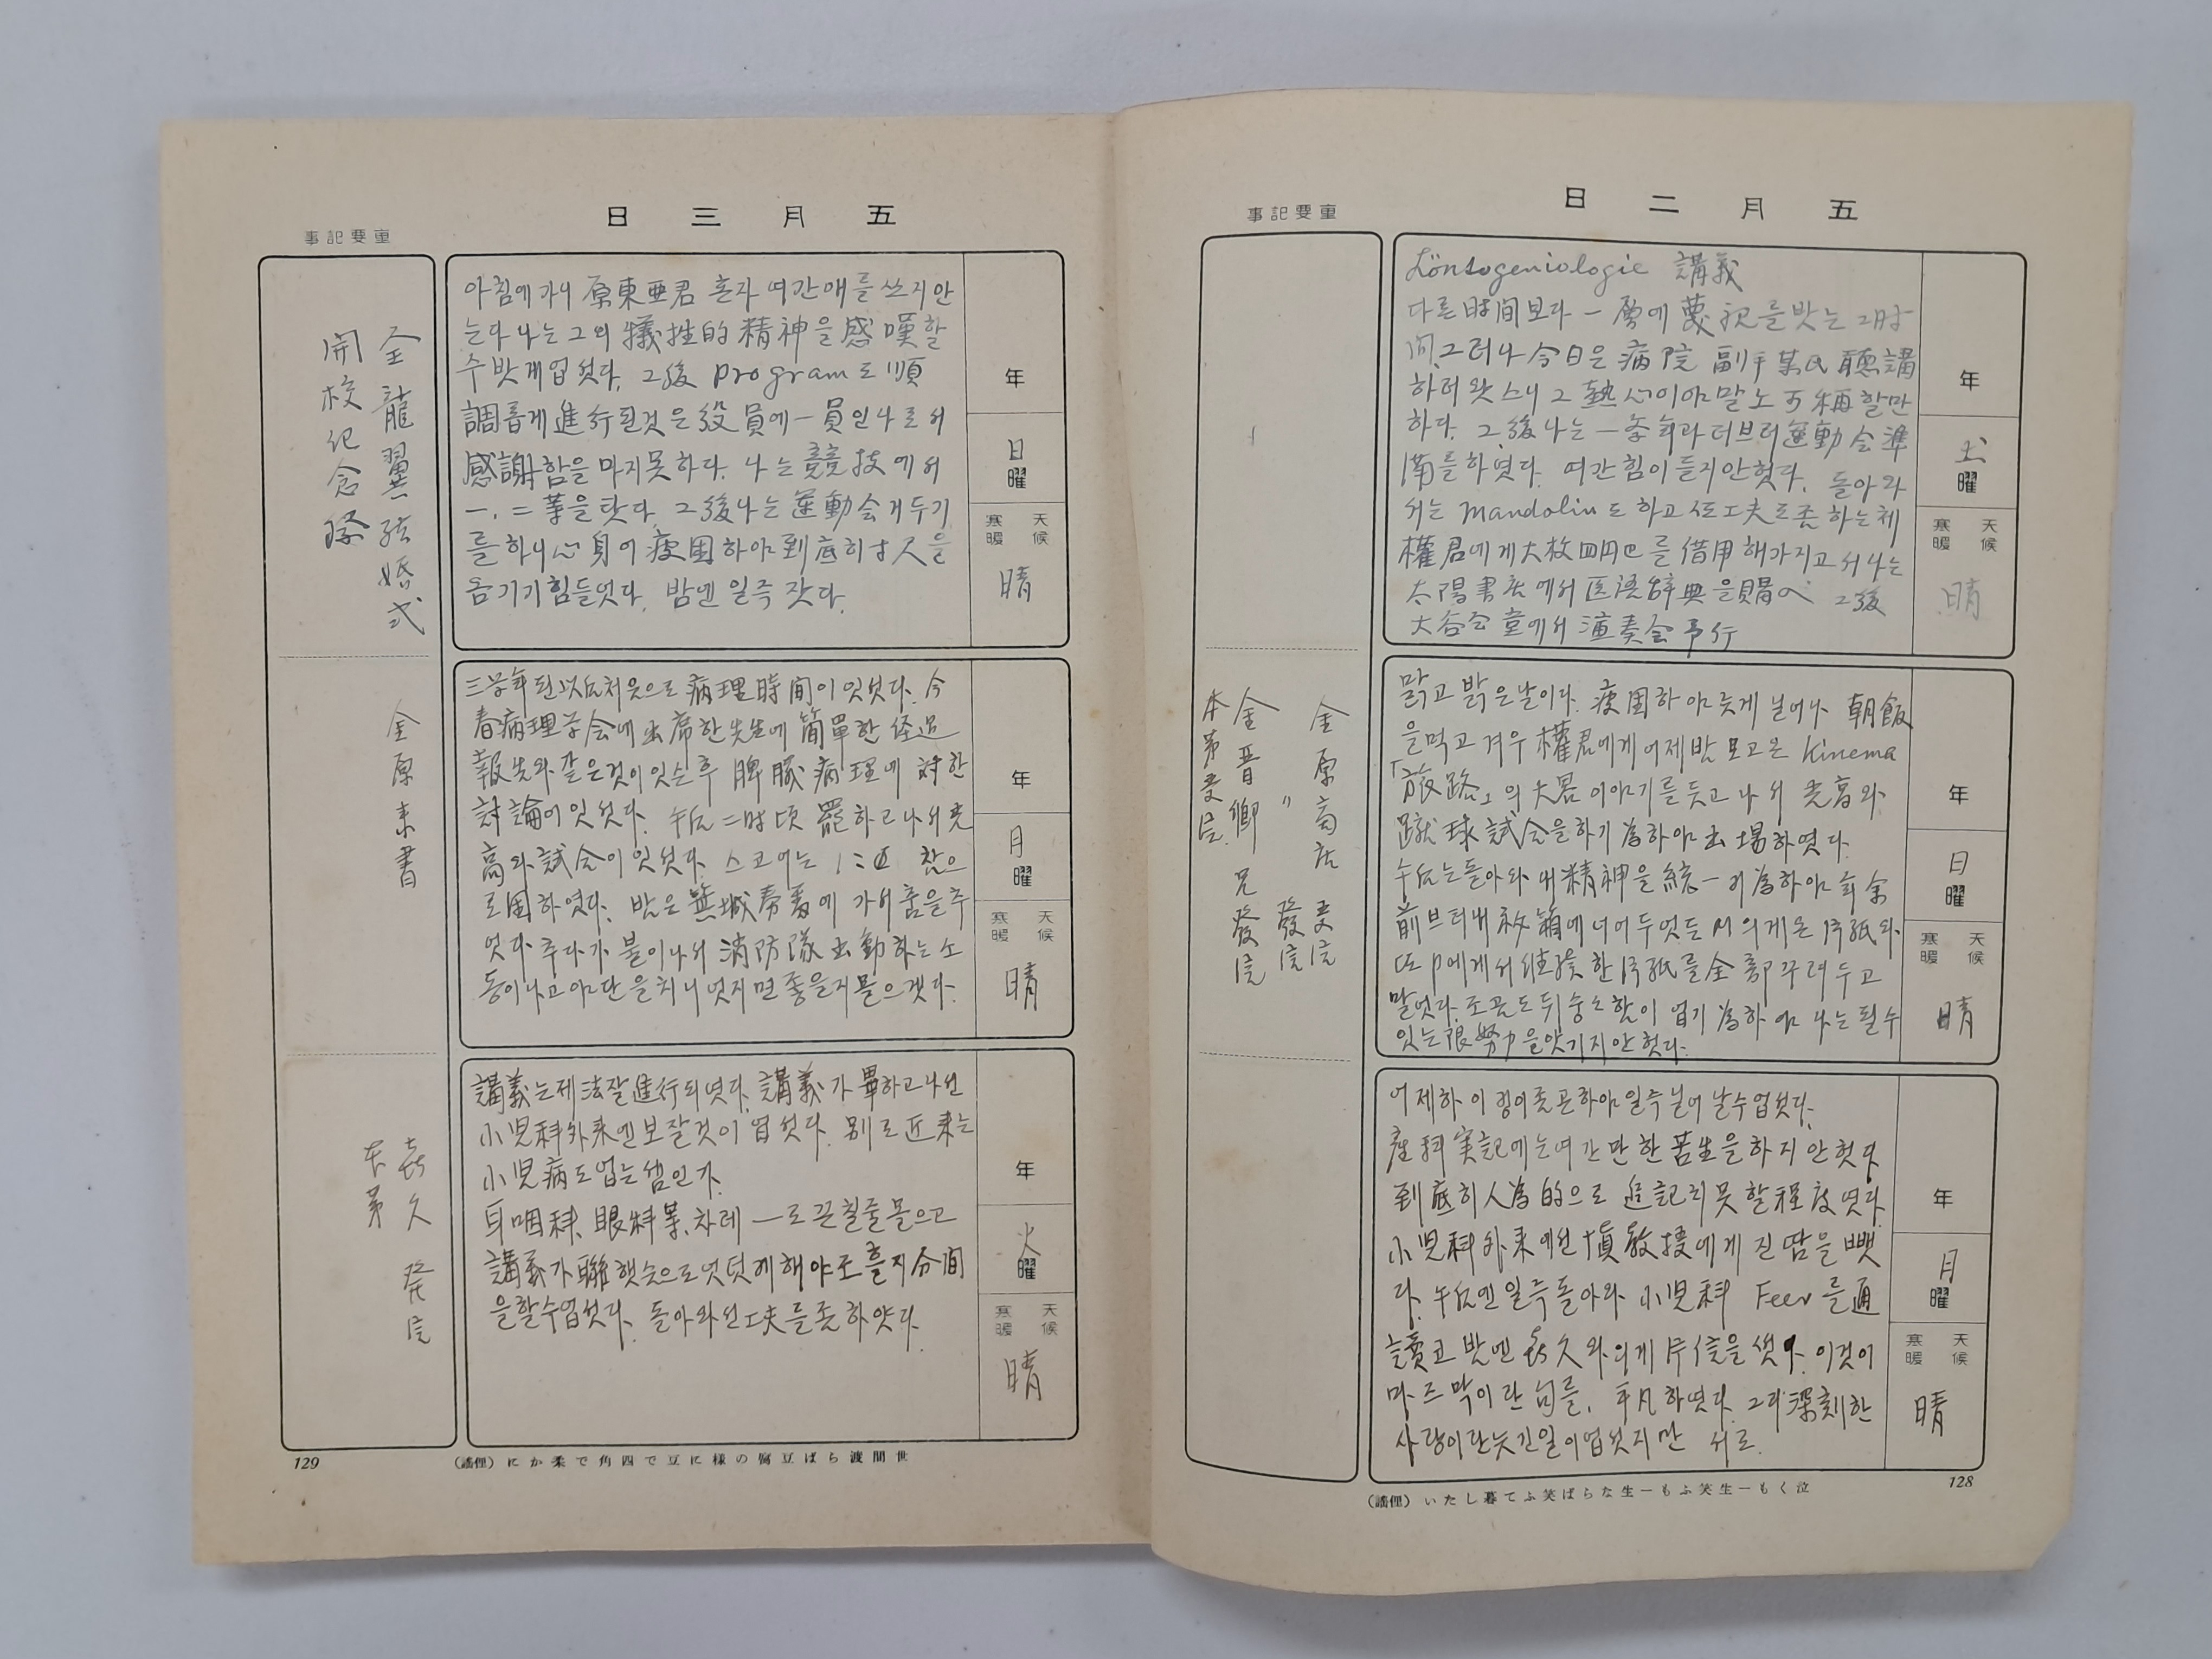 五月二日
重要記事
講義
다른 時間보다 一層에
그러나 今日은 病院 副手 某氏 聽講
하려 왓스니 그 熱心이야말노 可稱할만
하다. 그後 나는 一年과 더브러 運動会 準
備를 하엿다. 여간 힘이 들지 안헛다. 돌아와
서는 mandolin도 하고 工夫도 좀 하는체
權君에게 大枚 四円也를 借用해가지고서 나는
太陽書店에서 医語辞典을 購入 그後
大谷公堂에서 演奏会 予行
年
土曜
天候
寒暖
晴
맑고 밝은 날이다. 疲困하야 늦게 닐어나 朝飯
을 먹고 겨우 權君에게 어제밤 보고 온 Kinema
「旅路」의 大畧 이야기를 듯고 나서 高와
蹴球試合을 하기 為하야 出場하엿다.
午后는 돌아와 내 精神을 統一키 為하야
前브터 내 秘箱에 너어두엇든 M의게 온 片紙와
또 P에게서 한 片紙를 全部 꾸려두고
말엇다. 조곰도 뒤숭숭함이 업기 為하야 나는 될 수
잇는 限 努力을 앗기지 안헛다.
年
日曜
天候
寒暖
晴
金原商店 受信
金晋卿兄 〃 發信
本第受信
어제 하이킹이 좀 곤하야 일즉 닐어날 수 업섯다.
産科 実記에는 여간만한 苦生을 하지 안헛다
到底히 人為的으로 追記치 못할 程度엿다.
小児科 外来에선 教授에게 진땀을 뺏
다. 午后엔 일즉 돌아와 小児科 Feer를 通
讀고 밤엔 喜久와의게 片信을 썻다. 이것이
마즈막이란 句를. 平凡하엿다. 그리 深刻한
사랑이란 늣긴 일이 업섯지만 서로.
年
月曜
天候
寒暖
晴
泣くも一生笑ふも一生ならば笑ふて暮したい（俚謡）
128
五月三日
重要記事
아침에 가니 原東亜君 혼자 여간 애를 쓰지 안
는다 나는 그의 犧牲的 精神을 感嘆할
수밧게 업섯다. 그後 program도 順
調롭게 進行된 것은 役員에 一員인 나로서
感謝함을 마지못하다. 나는 競技에서
一. 二等을 탓다. 그後 나는 運動会 거두기
를 하니 心身이 疲困하야 到底히 寸尺을
옴기기 힘들엇다. 밤엔 일즉 잣다.
年
日曜
天候
寒暖
晴
金龍翼 結婚式
開校紀念祭
三学年 된 以后 처음으로 病理時間이 잇섯다. 今
春 病理学会에 出席한 先生에 簡單한 経過
報告와 갓은 것이 잇슨 후 脾臓病理에 対한
討論이 잇섯다. 午后 二時頃 罷하고 나서
高와 試合이 잇섯다. 스코어는 참으
로 困하엿다. 밤은 에 가서 춤을 추
엇다 추다가 불이 나서 消防隊 出動하는 소
동이 나고 야단을 치니 엇지면 좋을지 몰으겟다.
年
月曜
天候
寒暖
晴
金原 来書
講義는 제法 잘 進行되엿다. 講義가 畢하고 나선
小児科 外来엔 보잘 것이 업섯다. 別로 近来는
小児病도 업는 셈인가.
耳咽科、眼科等、차례 一로 끈칠 줄 몰으고
講義가 聯햇슴으로 엇덧케 해야 조흘지 分間
을 할 수 업섯다. 돌아와선 工夫를 좀 하얏다.
年
火曜
天候
寒暖
晴
喜久 發信
本第
世間渡らば豆腐の様に豆で四角で柔かに（俚謡）
129